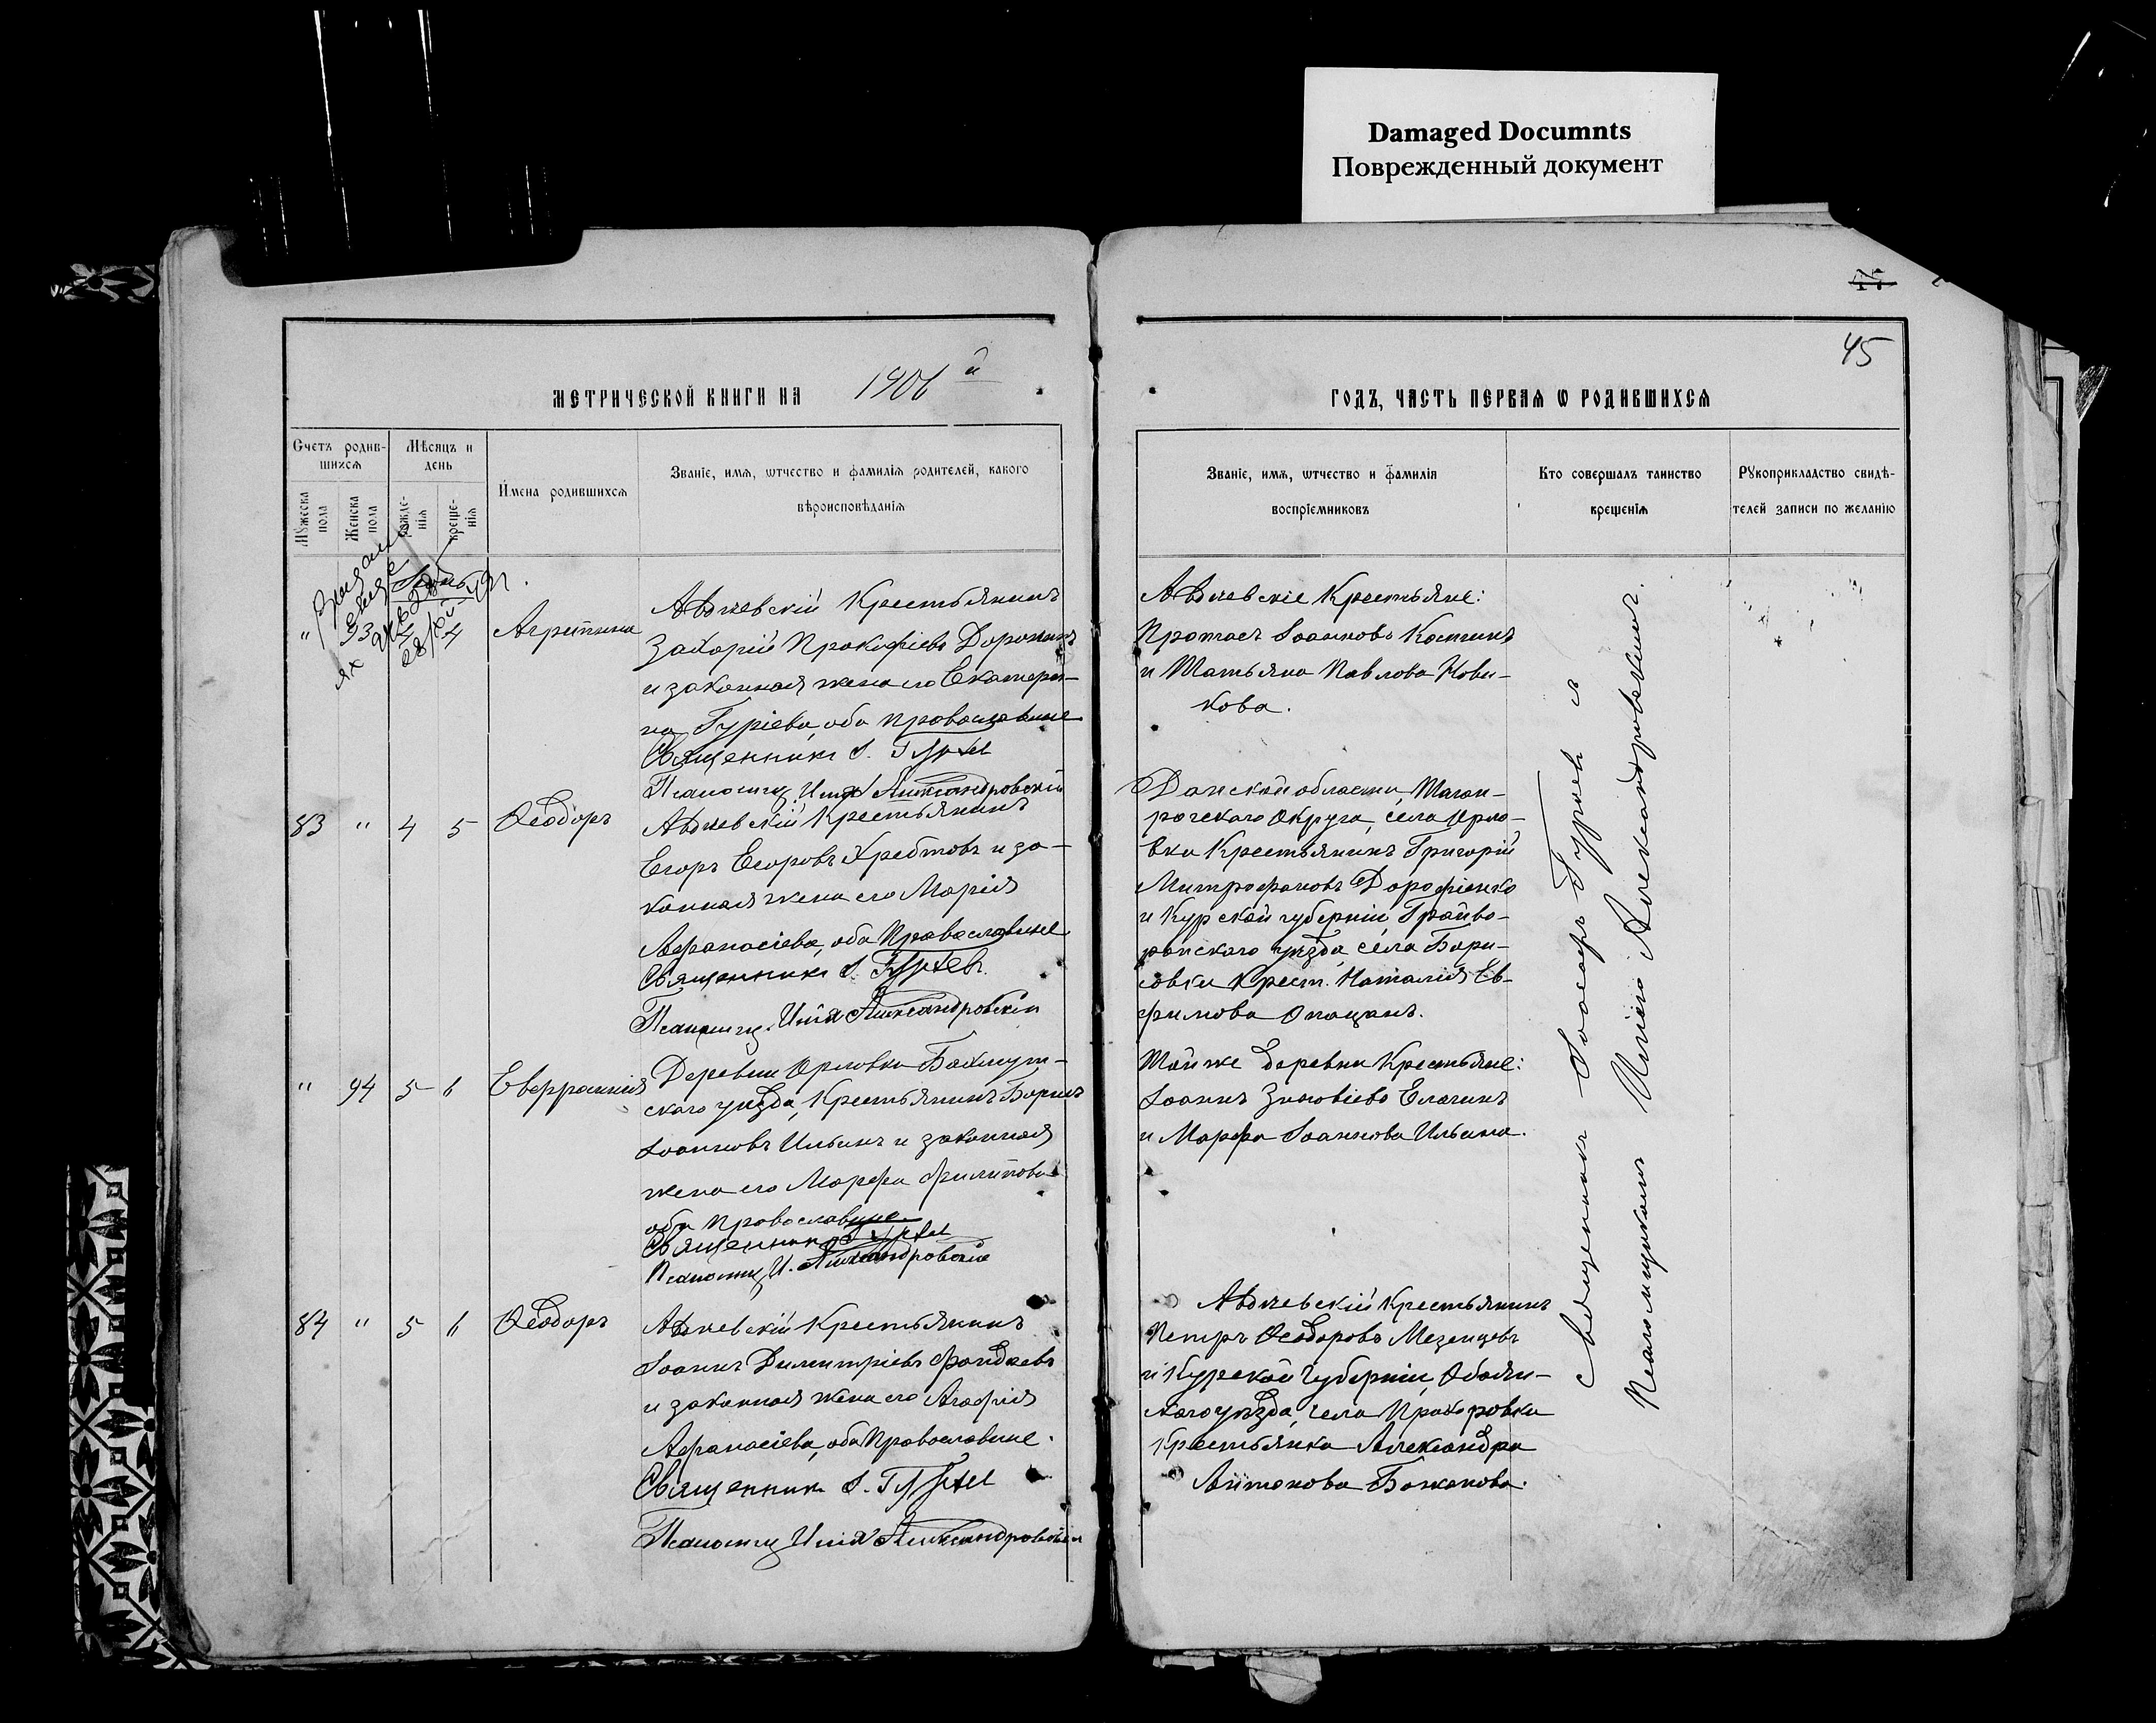 Damaged Documnts
Поврежденный документ
45
МЕТРИЧЕСКОЙ КНИГИ НА 1906 й
ГОДЪ, ЧАСТЬ ПЕРВАЯ Ѡ РОДИВШИХСЯ
Счетъ родив-
шихся
Мѣсяцъ и
день
Мужеска
пола
Женска
пола
рожде-
нія
креще-
нія
Имена родившихся
Званіе, имя, ѡтчество и фамилія родителей, какого
вѣроисповѣданія
Званіе, имя, ѡтчество и фамилія
воспріемниковъ
Кто совершалъ таинство
крещенія
Рукоприкладство свидѣ-
телей записи по желанію
" 93 4 4
Агрипина
Авдѣевскій Крестьянинъ
Захарій Прокофіевъ Доронинъ
и законная жена его Екатери-
на Гуріева, оба православные
Священникъ І. Гурѣев
Псаломщ. Илія Александровскій
Авдѣевскіе Крестьяне:
Протасъ Іоанновъ Костинъ
и Татьяна Павлова Нови-
кова.
83 " 4 5
Ѳеодоръ
Авдѣевскій Крестьянинъ
Егоръ Егоровъ Хребтовъ и за-
конная жена его Марія
Афанасіева, оба Православные
Священникъ І. Гурѣевъ.
Псаломщ. Илія Александровскій
Донской области, Таган-
рогскаго Округа, села Орло-
вки Крестьянинъ Григорій
Митрофановъ Дорофіенко
и Курской губерніи, Грайво-
ронскаго уѣзда, села Бори-
совки Крест. Наталія Ев-
фимова Опацанъ.
" 94 5 6
Евфросинія
Деревни Орловки Бахмут-
скаго уѣзда, Крестьянинъ Борисъ
Іоанновъ Ильинъ и законная
жена его Марфа Филипова
оба православные
Священникъ І. Гурѣев
Псаломщ. И. Александровскій
Той же деревни Крестьяне:
Іоаннъ Зиновіевъ Елагинъ
и Марфа Іоаннова Ильина.
84 " 5 6
Ѳеодоръ
Авдѣевскій Крестьянинъ
Іоаннъ Димитріевъ Фандѣевъ
и законная жена его Агафія
Афанасіева, оба Православные.
Священникъ І. Гурѣев
Псаломщ. Илія Александровскій
Авдѣевскій Крестьянинъ
Петръ Ѳеодоровъ Мезенцевъ
и Курской Губерніи, Обоян-
скаго уѣзда, села Прохоровки
Крестьянка Александра
Антонова Божанова.
Священникъ Іоасафъ Гурѣевъ и
Псаломщикъ Илія Александровскій.